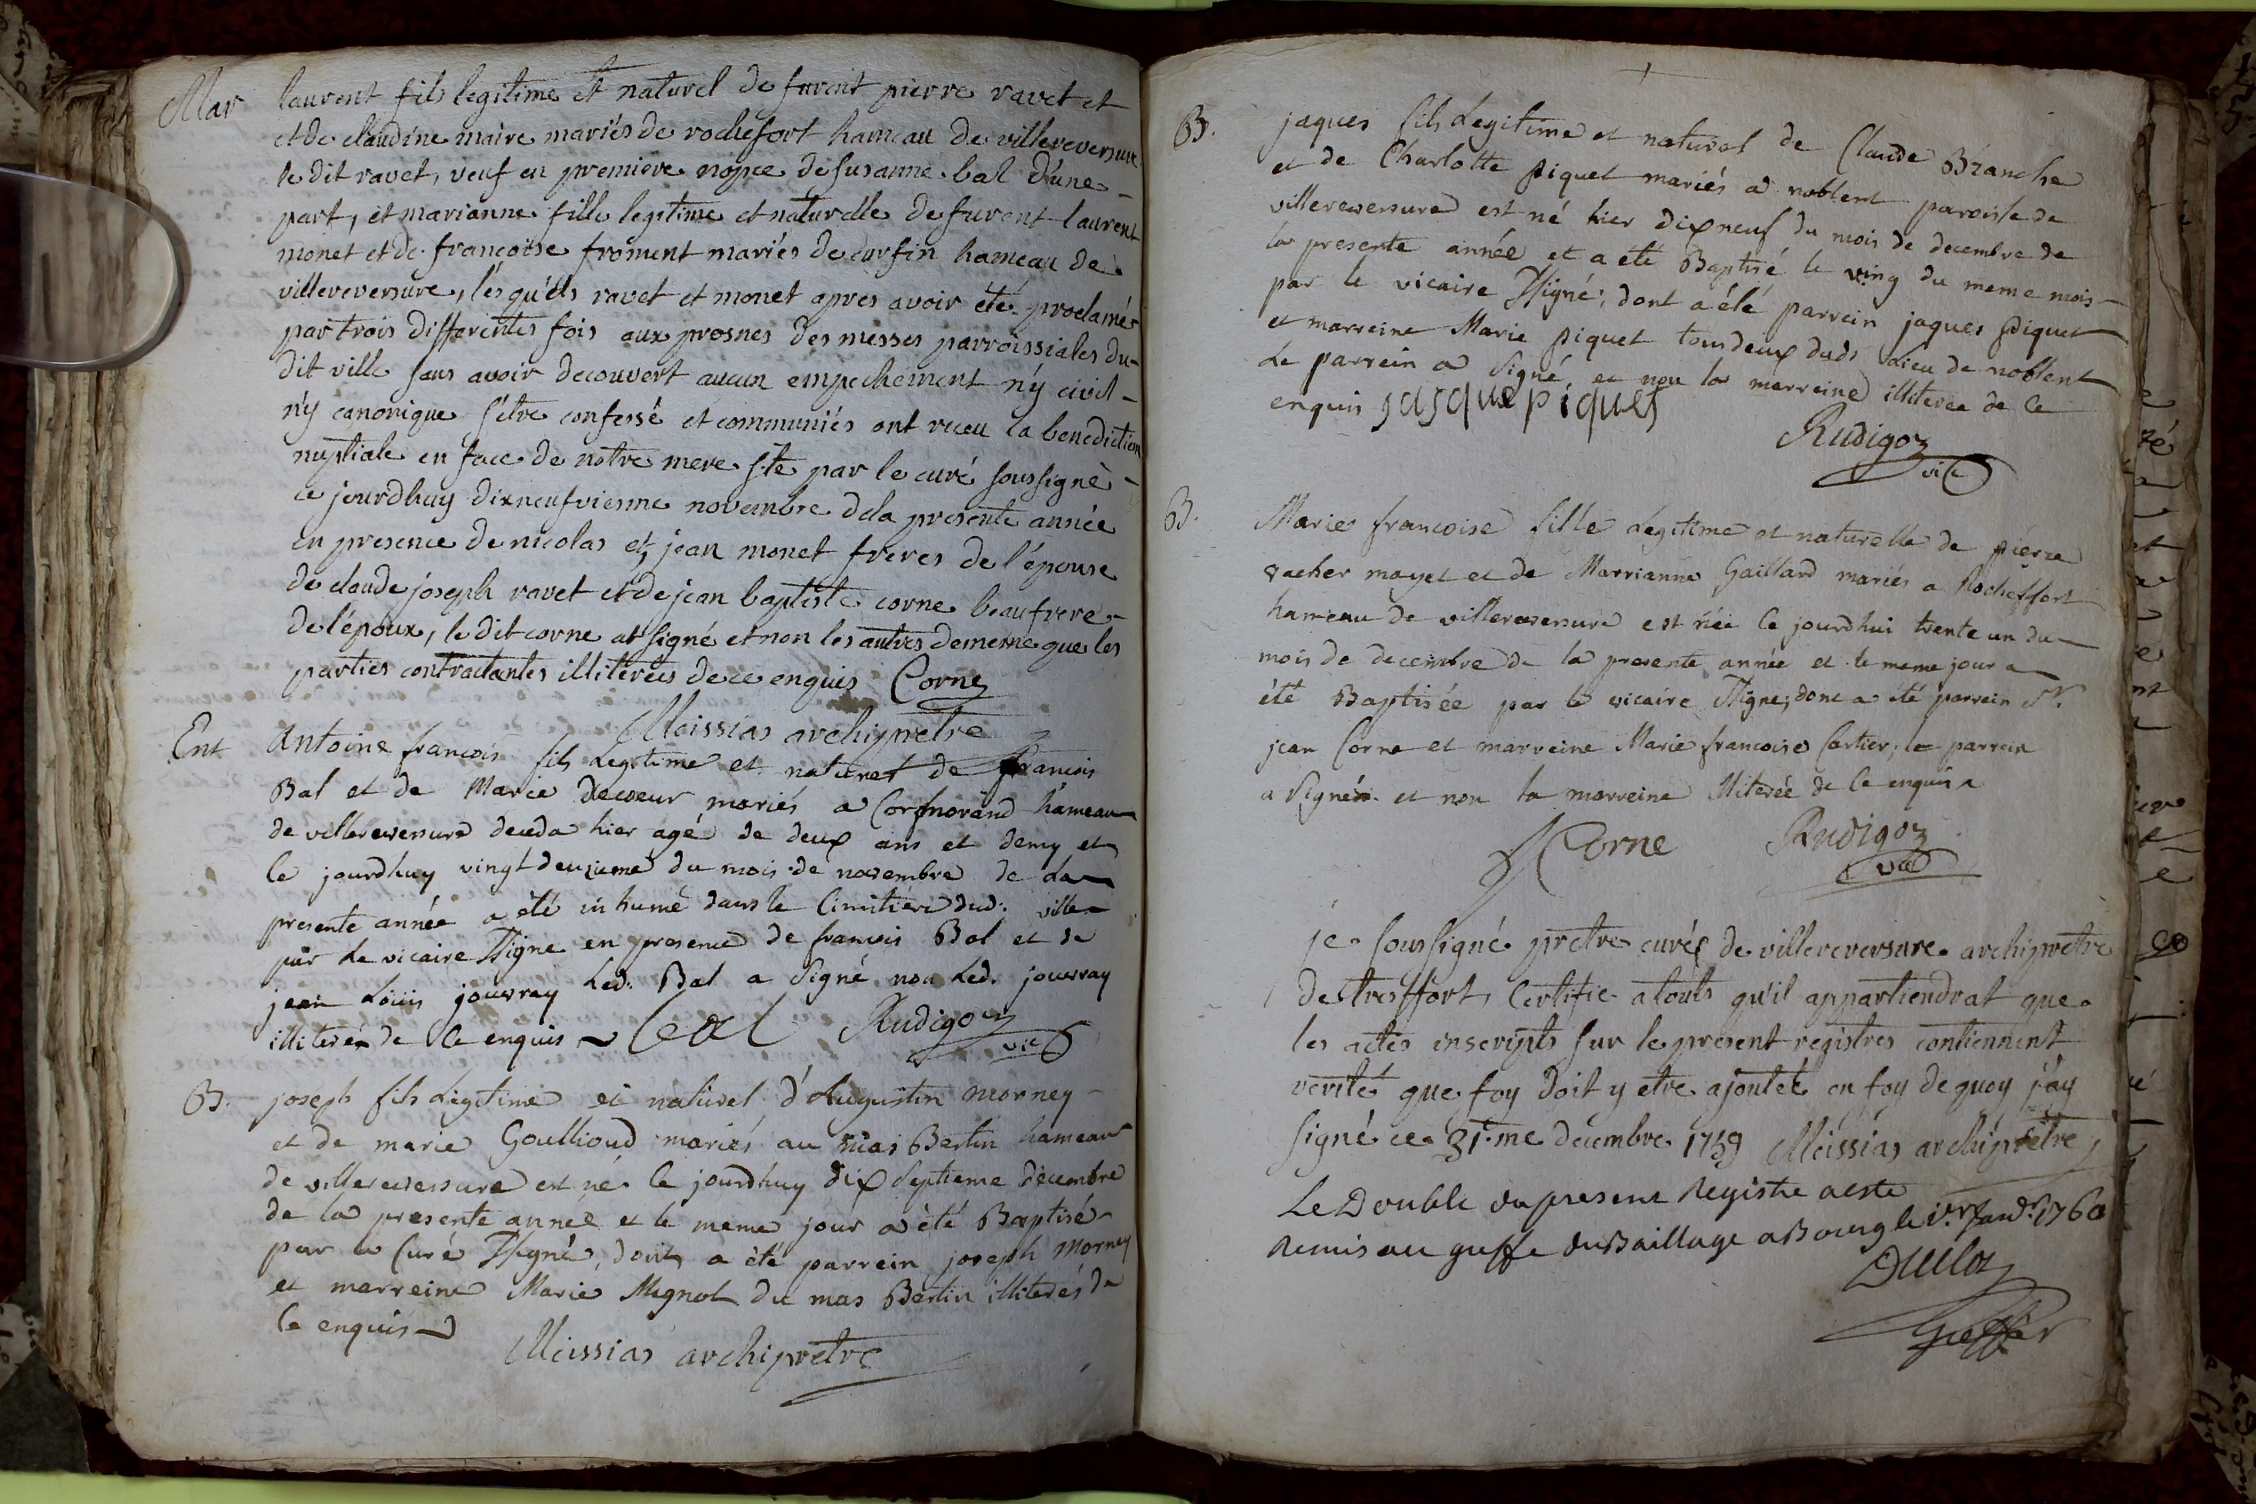 Mar laurent fils legitime et naturel de furent pierre ravet et
et de claudine maire mariés de rochefort hameau de villereversure
le dit ravet, veuf en premiere nopce de susanne bal d'une
part, et marianne fille legitime et naturelle de furent laurent
monet et de françoise froment mariés de curfin hameau de
villereversure, lésquéls ravet et monet apres avoir été proclamés
par trois differentes fois aux prosnes des messes parroissiales du
dit ville sans avoir decouvert aucun empechement n'y civil
n'y canonique s'étre confessé et communiés ont receu la benediction
nuptiale en face de notre mere ste par le curé soussigné
ce jourdhuy dixneufviesme novembre dela presente année
en presence de nicolas et jean monet freres de l'épouse
de claude joseph ravet et de jean baptiste corne beaufrere
de l'époux, le dit corne at signé et non les autres dememe que les
parties contractantes illiterées de ce enquis Corne
Meissias archiprétre
Ent Antoine francois fils Legitime et naturel de francois
Bal et de Marie Decoeur mariés a Corfmorand hameau
de villereversure deceda hier agé de deux ans et demy et
ce jourdhuy vingt deuxieme du mois de novembre de La
presente année a été inhumé dans le Cimitiere dud. ville
par Le vicaire ssigne en presence de francois Bal et de
jean Loüis jouvray Led. Bal a signé non Led. jouvray
illiteré de Ce enquis Bal Rudigoz
vic
B. joseph fils Legitime et naturel d'Augustin morney
et de marie Goullioud mariés au mas Bertin hameau
de villereversure est né Ce jourdhuy dix septieme decembre
de la presente année et le meme jour a été Baptisé
par le Curé ssigné, dont a été parrein joseph Morney
et marreine Marie Mignot du mas Bertin illiterés de
Ce enquis
Meissias archiprétre
B. jaques fils Legitime et naturel de Claude Branche
et de Charlotte piquet mariés a noblent paroisse de
villereversure est né hier dixneuf du mois de decembre de
la presente année et a eté Baptisé le ving du meme mois
par le vicaire ssigné, dont a été parrein jaques piquet
et marreine Marie piquet tousdeux dud. Lieu de noblent
Le parrein a signé et non la marreine illiterée de Ce
enquis jasque piquet
Rudigoz
vic
B. Marie francoise fille Legitime et naturelle de pierre
vacher mayet et de Marrianne Gaillard mariés a Rocheffort
hameau de villereversure est née Ce jourdhui trente un du
mois de decembre de la presente année et le meme jour a
été Baptisée par le vicaire ssigne, dont a été parrein Sr.
jean Corne et marreine Marie francoise Cartier; le parrein
a signé et non la marreine illiterée de Ce enquis
J Corne Rudigoz
vic
je soussigné prétre curé de villereversure archiprétre
de treffort, Certifie a touts qu'il appartiendrat que
les actes inscripts sur le present registres contiennent
verité que foy doit y etre ajoutée en foy de quoy j'ay
signé ce 31.me decembre 1759 Meissias archiprétre
Le Double du present Registre a esté
Remis au greffe du Baillage a Bourg le 1.er Janv.r 1760
Greffier